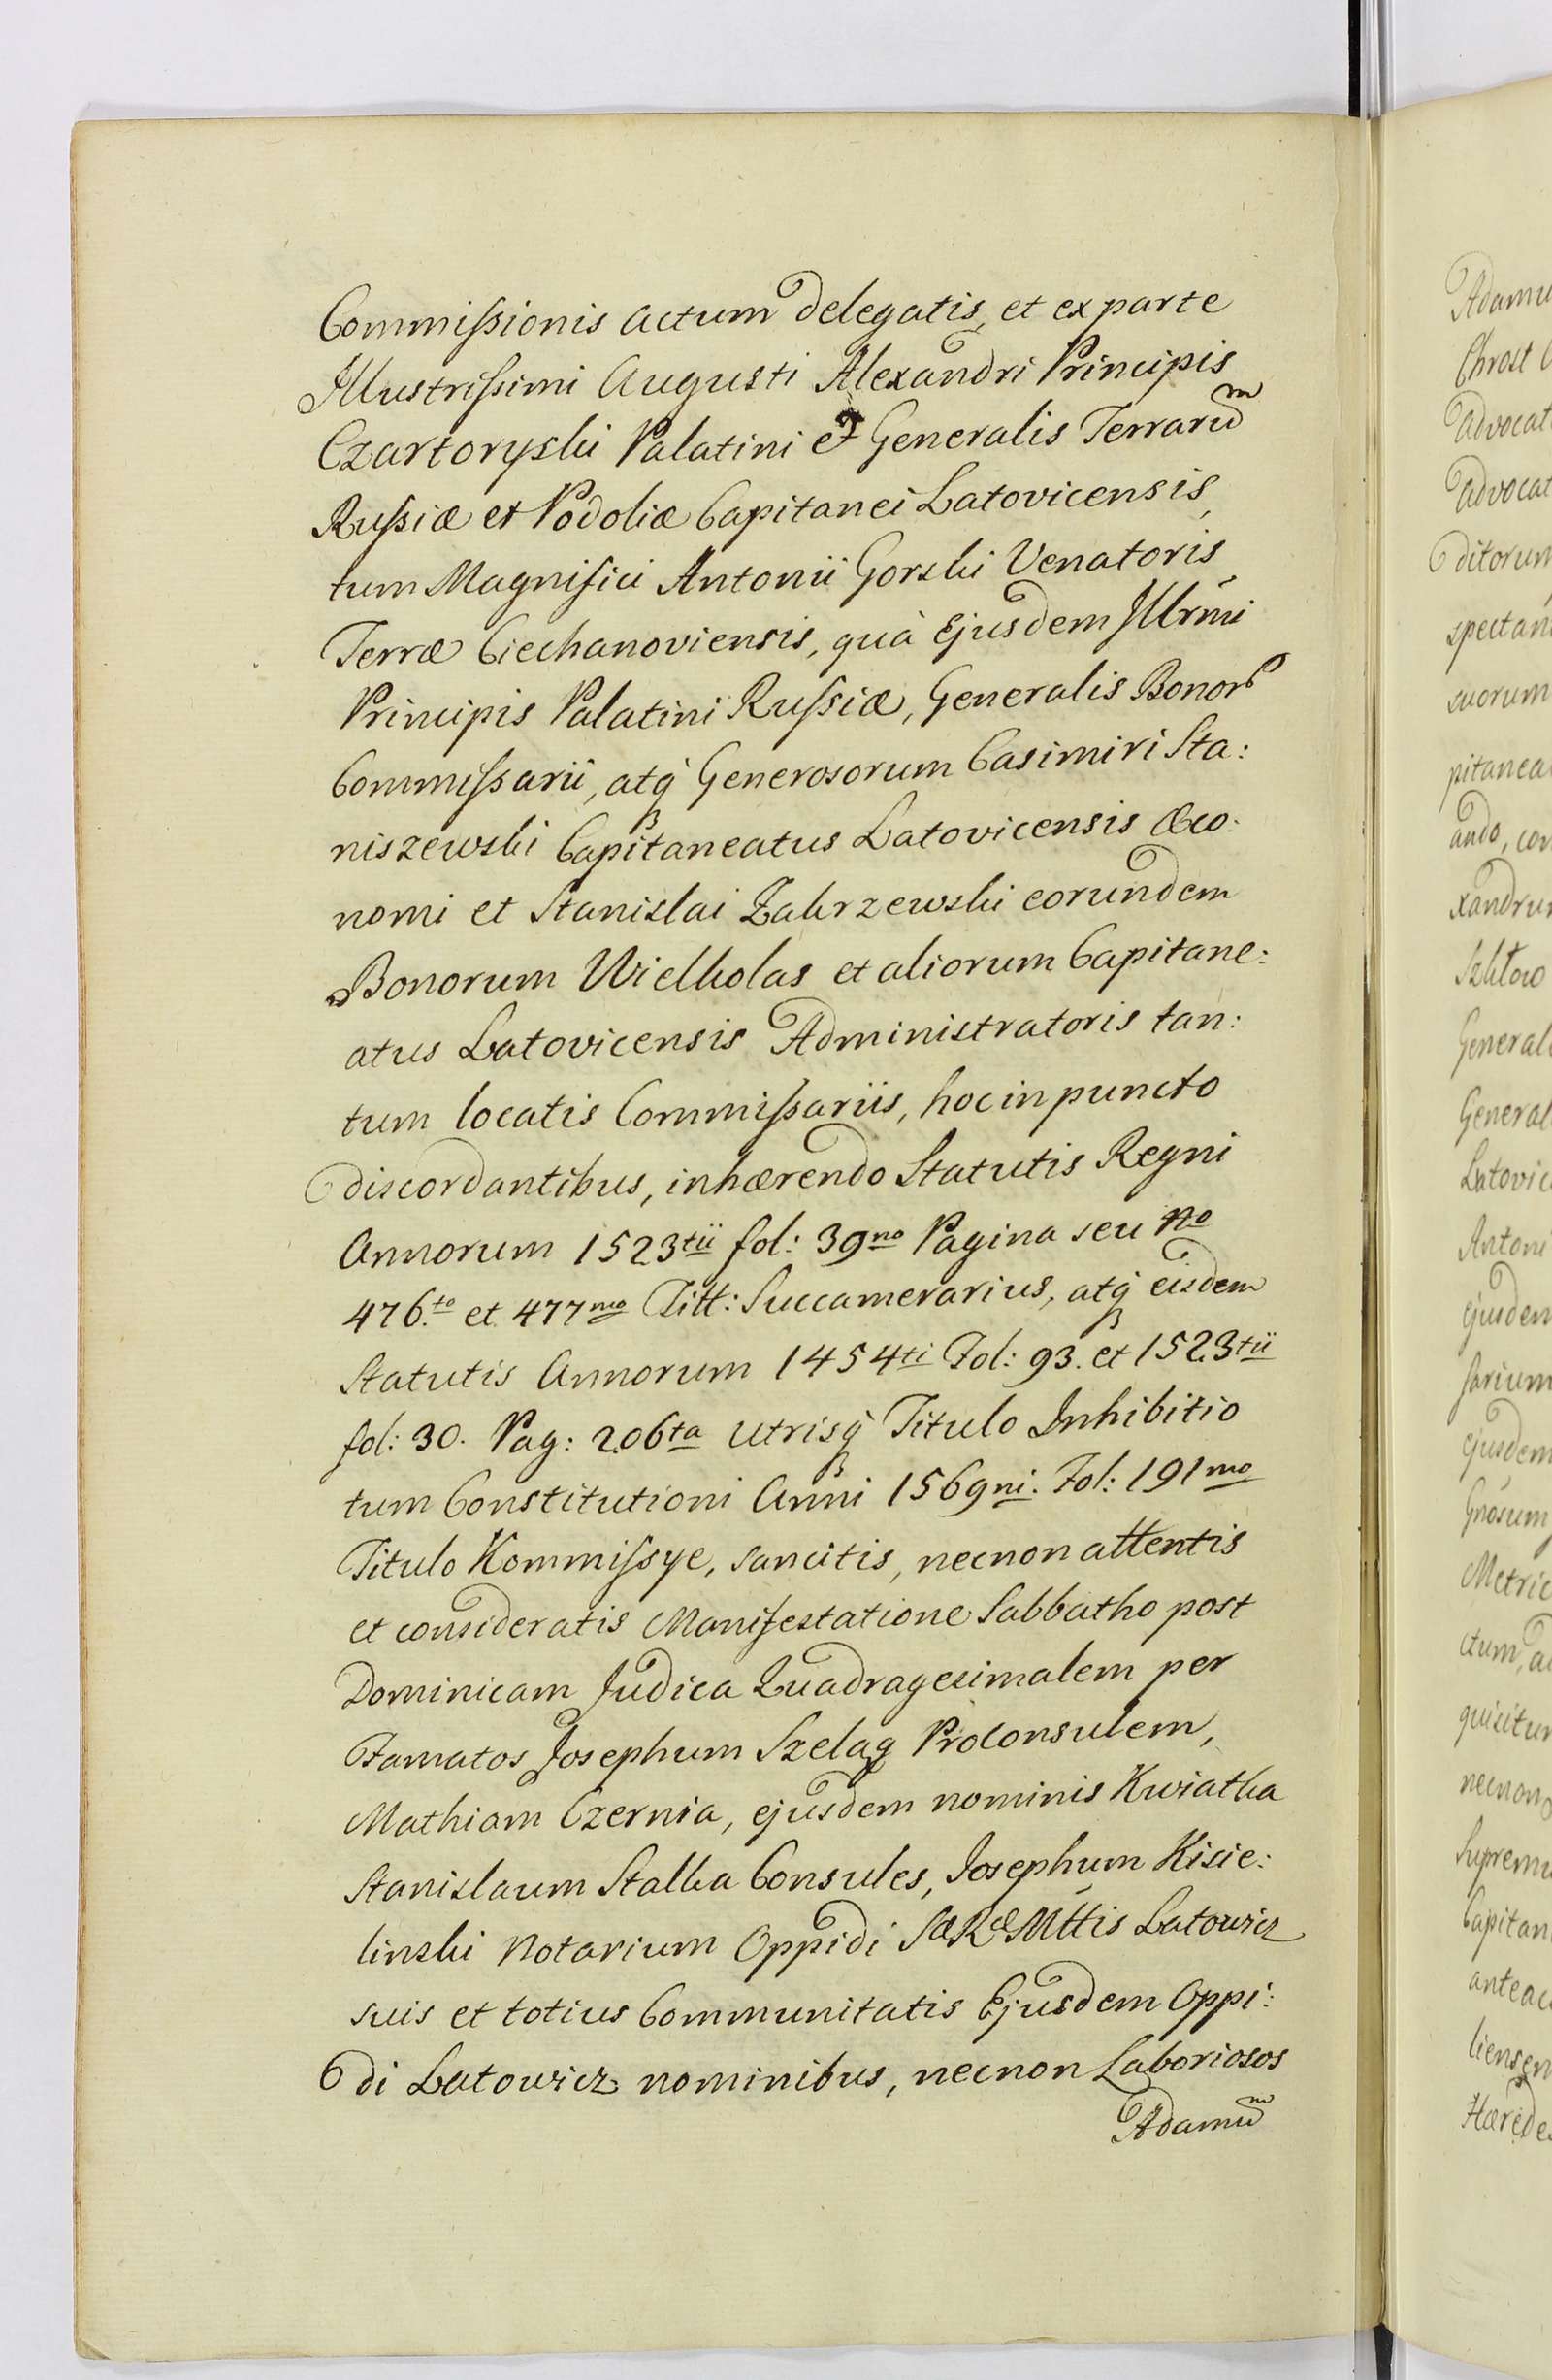 Commissionis actum delegatis, et ex parte
Illustrissimi Augusti Alexandri Principis
Czartoryski Palatini et Generalis Terrarum
Russiæ et Podoliæ Capitanei Latovicensis,
tum Magnifici Antonii Gorski Venatoris
Terræ Ciechanoviensis, quà Ejusdem Illrmi
Principis Palatini Russiæ, Generalis Bonor
Commissarii, atq Generosorum Casimiri Sta:
niszewski Capitaneatus Latovicensis Œco:
nomi et Stanislai Zakrzewski eorundem
Bonorum Wielkolas et aliorum Capitane:
atus Latovicensis Administratoris tan:
tum locatis Commissariis, hoc in puncto
discordantibus, inhærendo Statutis Regni
Annorum 1523tii fol: 39no Pagina seu No
476.to et 477mo Titt: Succamerarius, atq eisdem
Statutis Annorum 1454ti Fol: 93. et 1523tii
fol: 30. Pag: 206ta utrisq Titulo Inhibitio
tum Constitutioni Anni 1569ni. Fol: 191mo
Titulo Kommissye, sancitis, necnon attentis
et consideratis Manifestatione Sabbatho post
Dominicam Judica Quadragesimalem per
Famatos Josephum Szelag Proconsulem,
Mathiam Czernia, ejusdem nominis Kwiatka
Stanislaum Stalka Consules, Josephum Kisie:
linski Notarium Oppidi SæRæMttis Latowicz
suis et totius Communitatis Ejusdem Oppi:
di Latowicz nominibus, necnon Laboriosos
Adamum
Adamu
Chrost
Advocat
Advocat
ditorum
spectan
suorum
pitanea
ando, con
xandrum
General
General
Latovic
Antoni
ejusdem
sarium
ejusdem
Gnosum
Metric
ctum, a
quisitu
necnon
Supremu
Capitan
anteac
liensem
Hærede